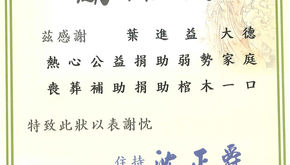 茲感謝 葉進益 大德
熱心公益捐助弱勢家庭
喪葬補助捐助棺木一口
特致此狀以表謝忱
住持